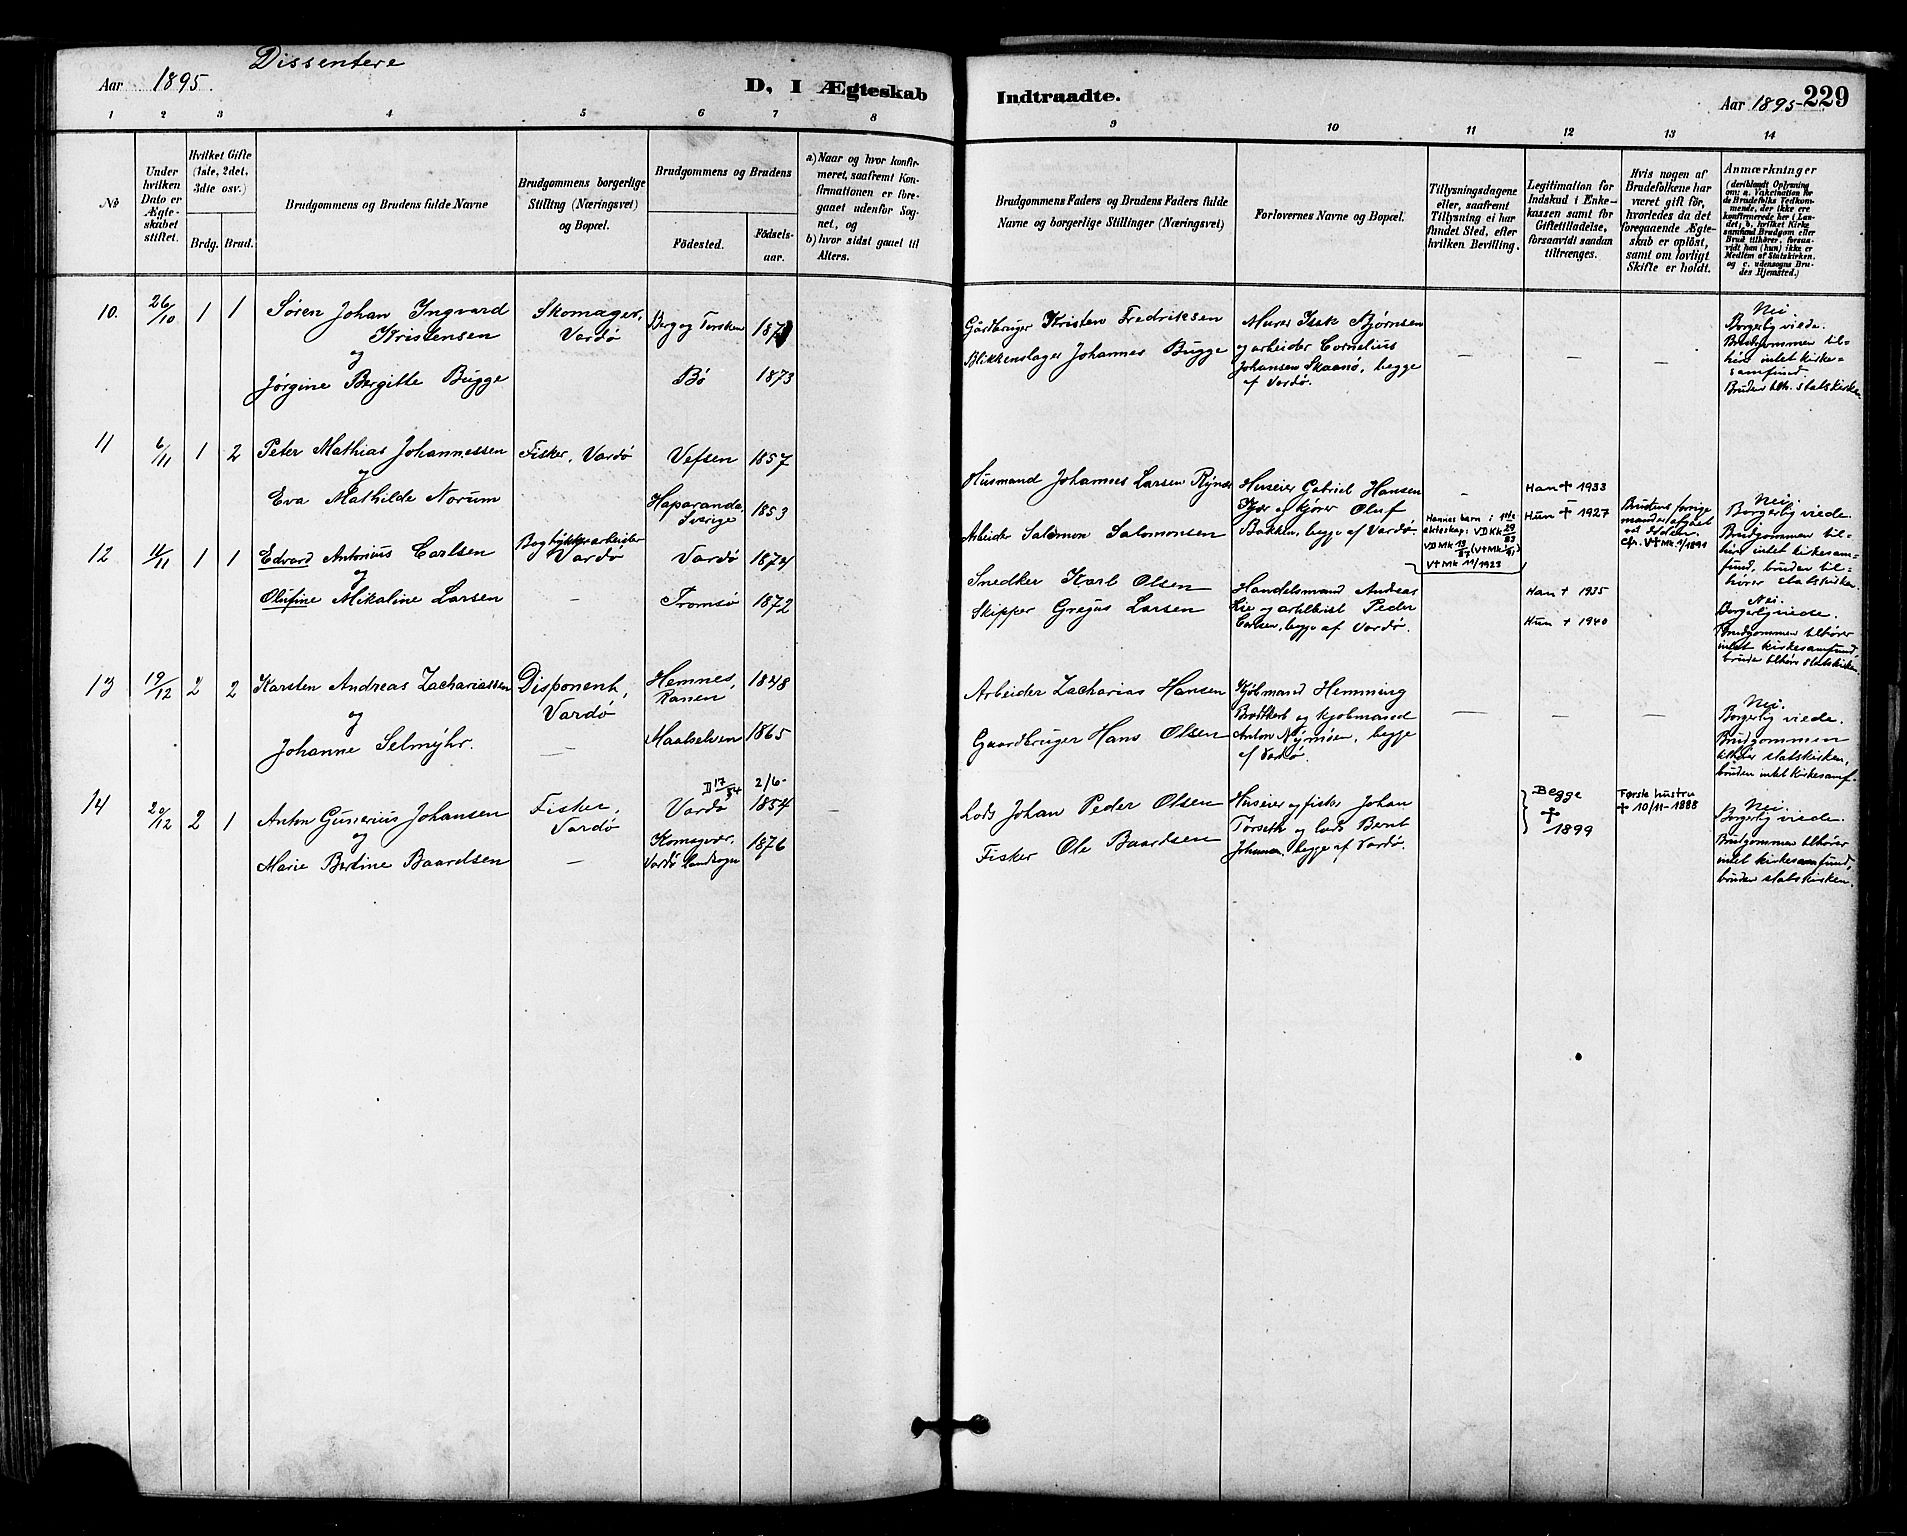 Dissentere
Aar 1895.
D, I Ægteskab
Indtraadte.
Aar 1895-
229
1 2 3 4 5 6 7 8
9 10 11 12 13 14
No
Under hvilken Dato er Ægteskabet stiftet.
Hvilket Gifte (1ste, 2det, 3die osv.)
Brdg. Brud.
Brudgommens og Brudens fulde Navne
Brudgommens borgerlige Stilling (Næringsvei) og Bopæl.
Brudgommens og Brudens
Födested.
Födsels-aar.
a) Naar og hvor konfirmeret, saafremt Konfirmationen er foregaaet udenfor Sognet, og
b) hvor sidst gaaet til Alters.
Brudgommens Faders og Brudens Faders fulde Navne og borgerlige Stillinger (Næringsvei)
Forlovernes Navne og Bopæl.
Tillysningsdagene eller, saafremt Tillysning ei har fundet Sted, efter hvilken Bevilling.
Legitimation for Indskud i Enkekassen samt for Giftetilladelse, forsaavidt saadan tiltrænges.
Hvis nogen af Brudefolkene har været gift för, hvorledes da det foregaaende Ægteskab er oplöst, samt om lovligt Skifte er holdt.
Anmærkninger
(deriblandt Oplysning om: a. Vakcination for de Brudefolks Vedkommende, der ikke ere konfirmerede her i Landet, b. hvilket Kirkesamfund Brudgom eller Brud tilhörer, forsaavidt han (hun) ikke er Medlem af Statskirken, og c. udensogns Brudes Hjemsted.)
10. 26/10 1 1
Søren Johan Ingvard
Kristensen
og
Jørgine Bergitte Bugge
Skomager,
Vardø
Berg og Torsken
Bø 1873
Gårdbruger Kristen Fredriksen
Blikkenslager Johannes Bugge
Murer Isak Bjørnsen
og arbeider Cornelius
Johansen Skaanø, begge
af Vardø.
— — —
Nei.
Borgerlig viede.
Brudgommen til-
hører intet kirke-
samfund.
Bruden tilh. statskirken
11 6/11 1 2
Peter Mathias Johannessen
og
Eva Mathilde Norum
Fisker, Vardø
Vefsen 1857
Haparanda,
Sverige 1853
Husmand Johannes Larsen Rynes
Arbeider Salomon Salomonsen
Huseier Gabriel Hansen
Kjær og kjører Oluf
Bakken, begge af Vardø.
—
Hannes barn i 1ste
ekteskap: VDKk 29/83
VDMk 13/87 (V+Mk 1/91)
V+Mk 11/1923
Han + 1933
Hun + 1927
Brudens forrige
mand er afgaaet
ved Døden.
Cfr. V+Mk. 9/1891
Nei.
Borgerlig viede.
Brudgommen til-
hører intet kirkesam-
fund, bruden til-
hører statskirken.
12 14/11 1 1
Edvard Antonius Carlsen
og
Olufine Mikaline Larsen
Bogtykkerarbeider
Vardø
—
Vardø 1874
Tromsø 1872
Snedker Karl Olsen
Skipper Gregus Larsen
Handelsmand Andreas
Lie og artillerist Peder
Carlsen, begge af Vardø.
Han + 1935
Hun + 1940
Nei.
Borgerlig viede.
Brudgommen tilhører
intet kirkesamfund,
brude tilhørs statskirken.
13 19/12 2 2
Karsten Andreas Zachariassen
og
Johanne Selmyhr.
Disponent,
Vardø
—
Hemnes,
Ranen 1848
Maalselven 1865
Arbeider Zacharias Hansen
Gaardbruger Hans Olsen
Kjøbmand Hemming
Brodtkorb og kjøbmand
Anton Nymoen, begge
af Vardø.
— — —
Nei.
Borgerlig viede.
Brudgommen
tilhører statskirken,
bruden intet kirkesamf-
14 20/12 2 1
Anton Gunerius Johansen
og
Marie Berdine Baardsen
Fisker,
Vardø
—
D 17/54 2/6-
Vardø 1854
Komagvær,
Vardø landsogn 1876
Lods Johan Peder Olsen
Fisker Ole Baardsen
Huseier og fisker Johan
Torseth og lods Bernt
Johansen, begge af Vardø.
Begge
+
1899
Første hustru
+ 10/11-1888
Nei.
Borgerlig viede.
Brudgommen tilhører
intet kirkesamfund,
bruden statskirken.